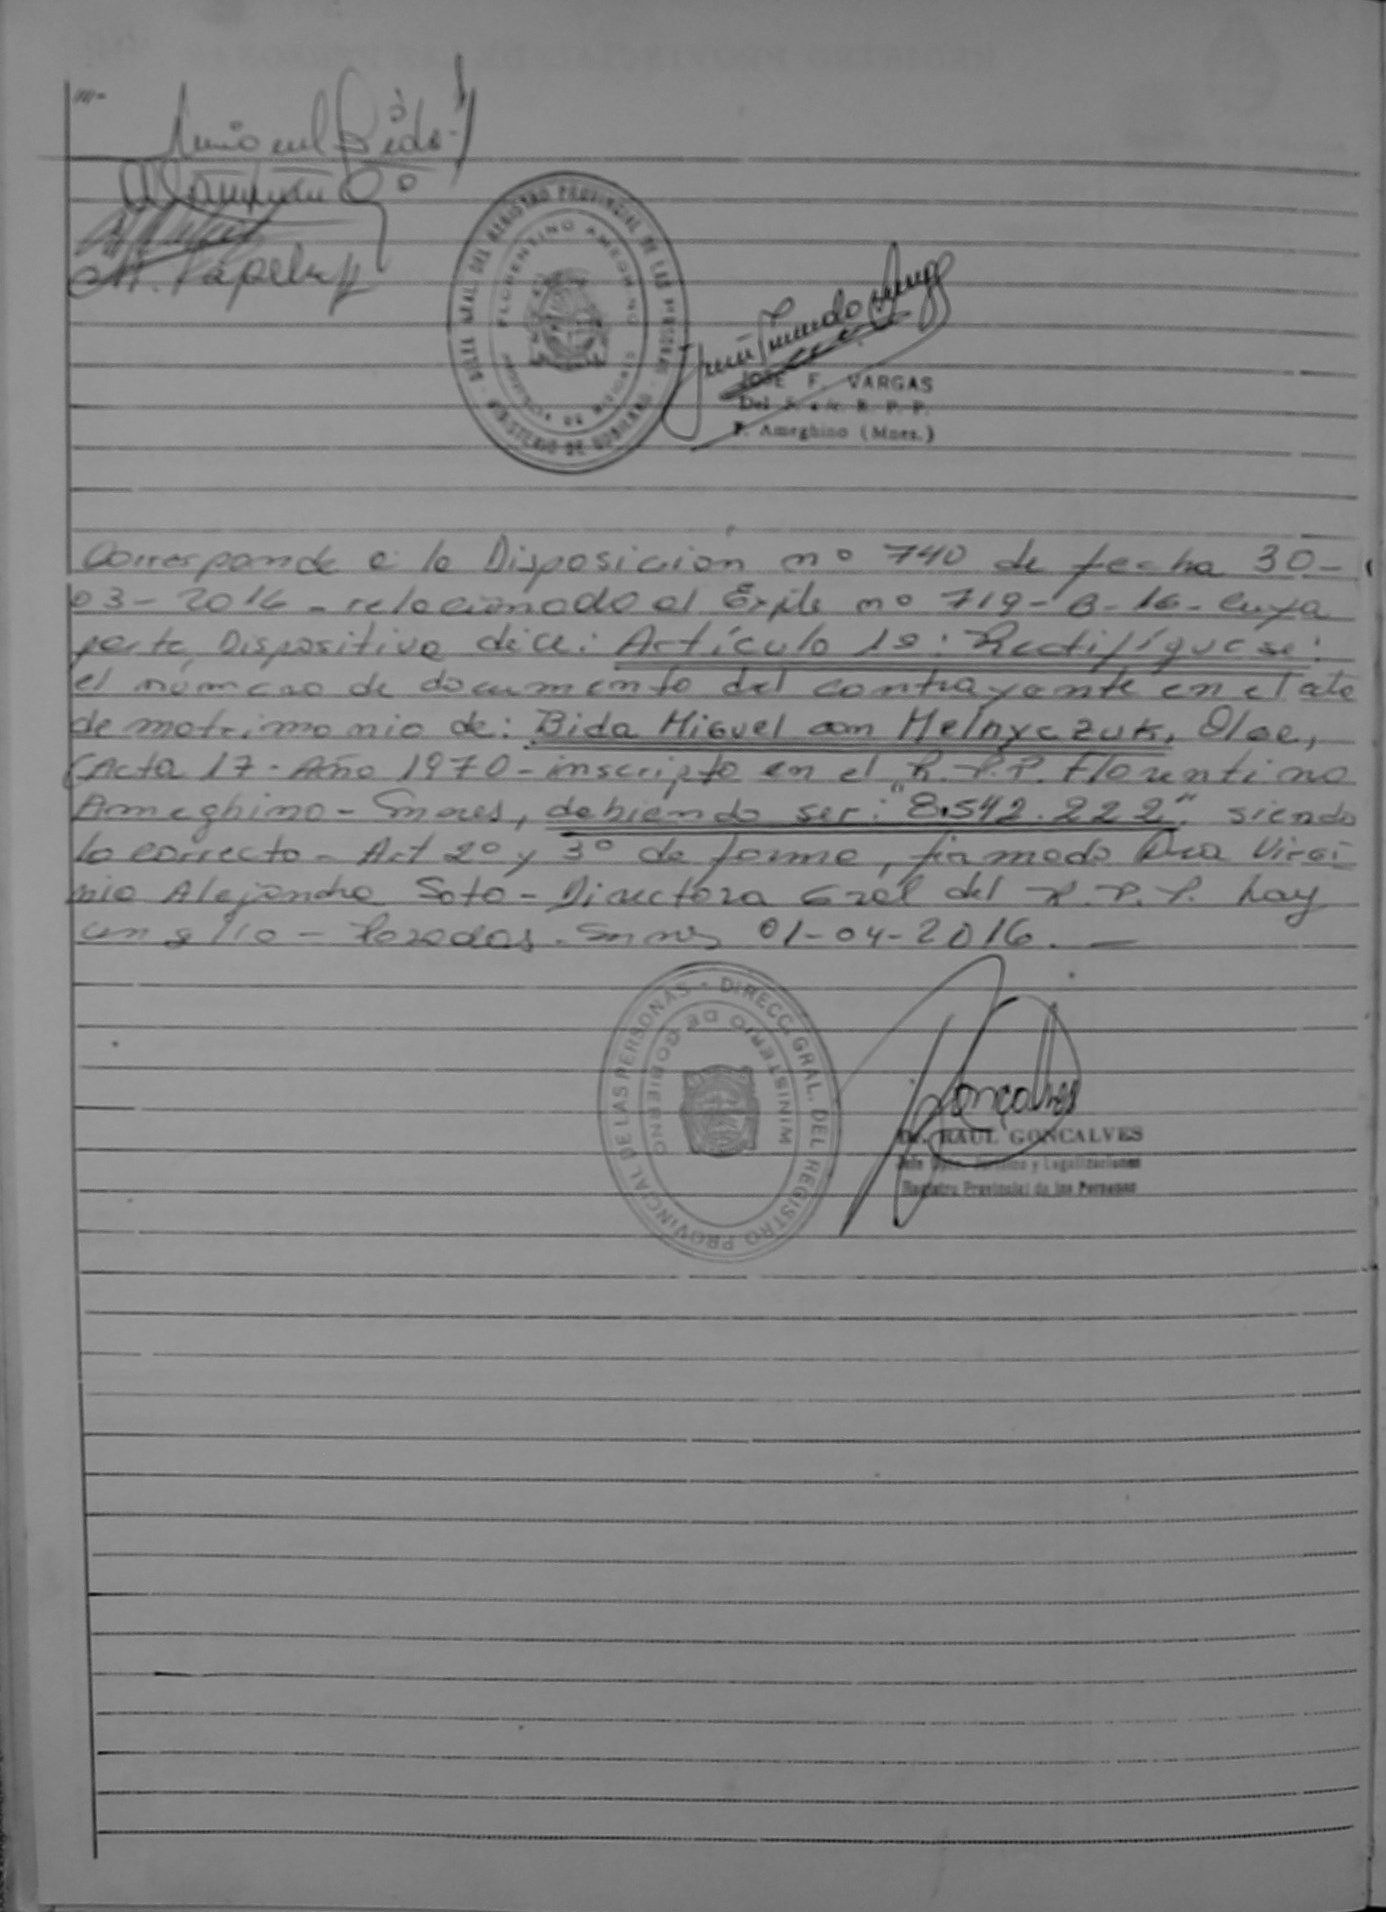 JOSE F. VARGAS
F. Ameghino (Mnes.)
MINISTERIO DE GOBIERNO
FLORENTINO AMEGHINO
Corresponde a la Disposición nº 740 de fecha 30-
03-2016 - relacionado al Expte nº 719-B-16- cuya
parte Dispositiva dice: Artículo 1º: Rectifíquese:
el número de documento del contrayente en el acta
de matrimonio de: Bida Miguel con Melnyczuk, Olga,
(Acta 17- Año 1970- inscripto en el R.P.P. Florentino
Ameghino- Mnes, debiendo ser: "8.542.222" siendo
lo correcto- Art 2º y 3º de forma, firmado Dra Virgi-
nia Alejandra Soto- Directora Gral del R.P.P. hay
un sello - Posadas. Mnes 01-04-2016. —
DIRECC. GRAL. DEL REGISTRO PROVINCIAL DE LAS PERSONAS -
MINISTERIO DE GOBIERNO
Gonçalves
Dr. RAUL GONCALVES
Jefe Dpto. Jurídico y Legalizaciones
Registro Provincial de las Personas